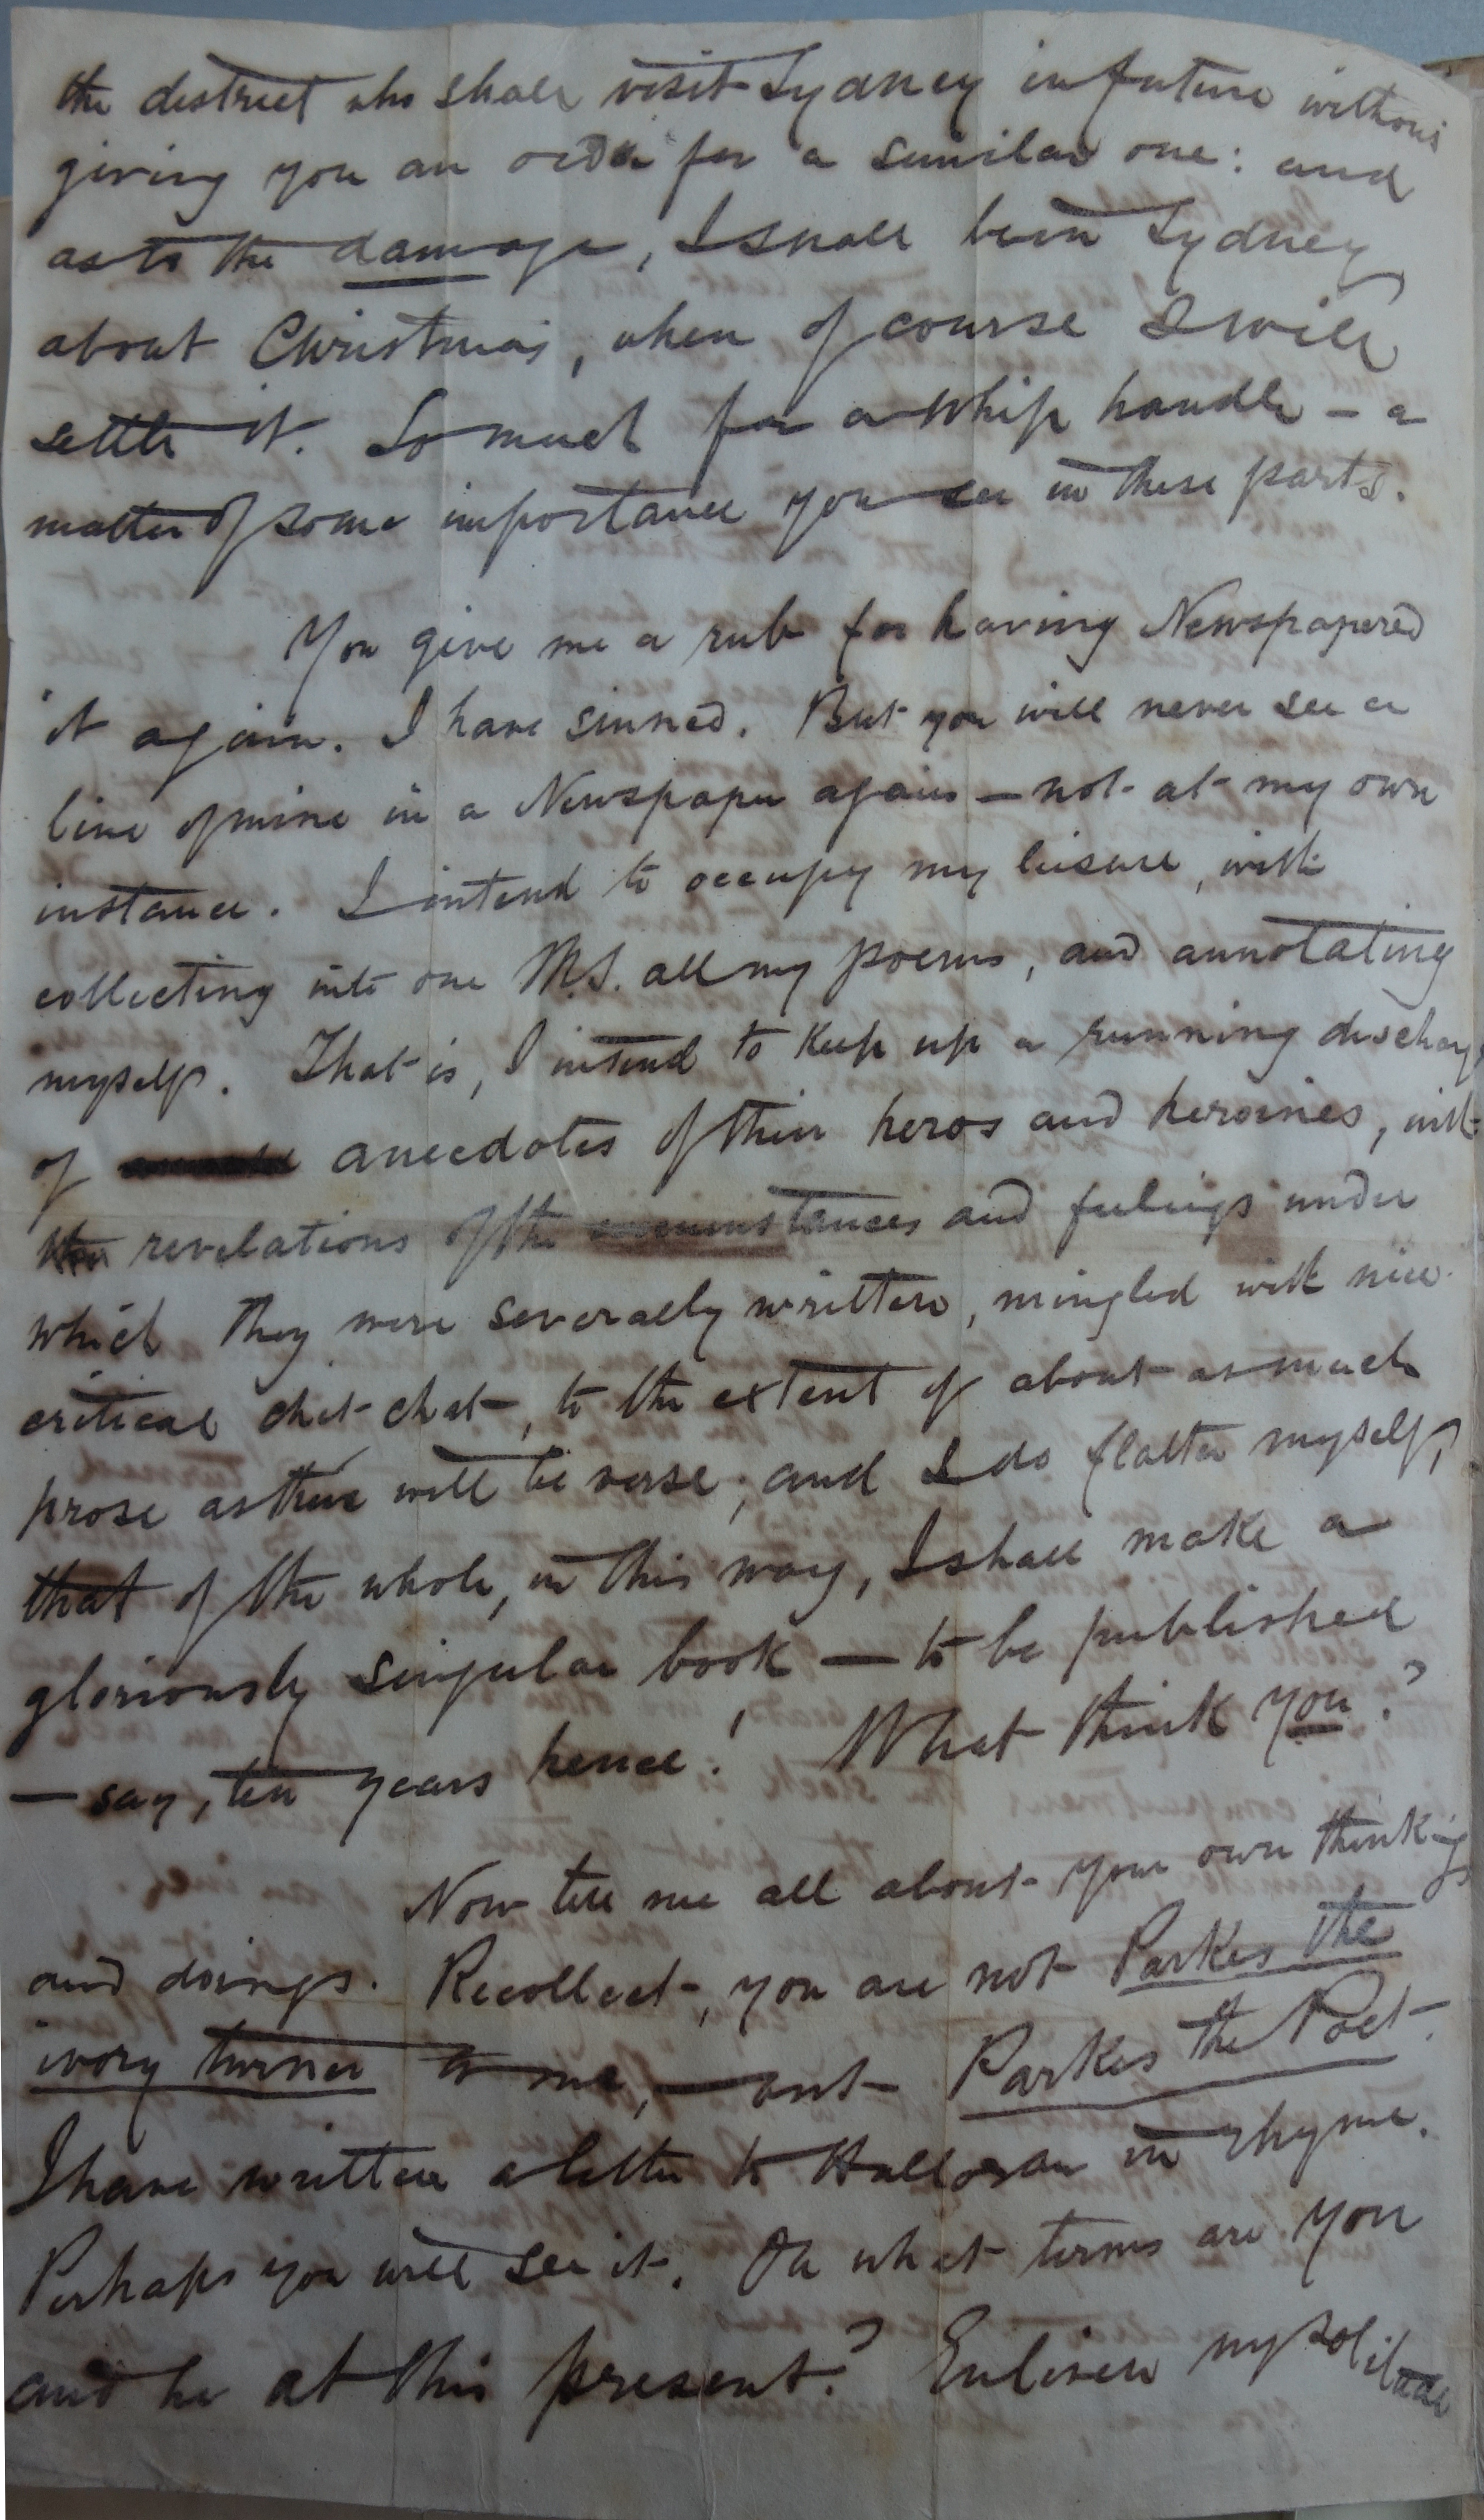 the district who shall visit Sydney in future without
giving you an order for a similar one: and
as to the damage, I shall be in Sydney
about Christmas, when of course I will
settle it. So much for a whip handle – a
matter of some importance you see in these parts.
You give me a rub for having Newspapered
it again. I have sinned. But you will never see a
line of mine in a Newspaper again – not at my own
instance. I intend to occupy my leisure, with
collecting into one M.S. all my poems, and annotating
myself. That is, I intend to keep up a running discharge
of anecdotes of their heros and heroines, with
revelations of the circumstances and feelings under
which they were severally written, mingled with nice
critical chit-chat, to the extent of about as much
prose as there will be verse; and I do flatter myself,
that of the whole, in this way, I shall make a
gloriously singular book — to be published
— say, ten years hence! What think you?
Now tell me all about your own thinkings
and doings. Recollect, you are not Parkes the
ivory turner to me, — but Parkes the Poet.
I have written a letter to Halloran in rhyme.
Perhaps you will see it. On what terms are you
and he at this present? Enliven my solitude